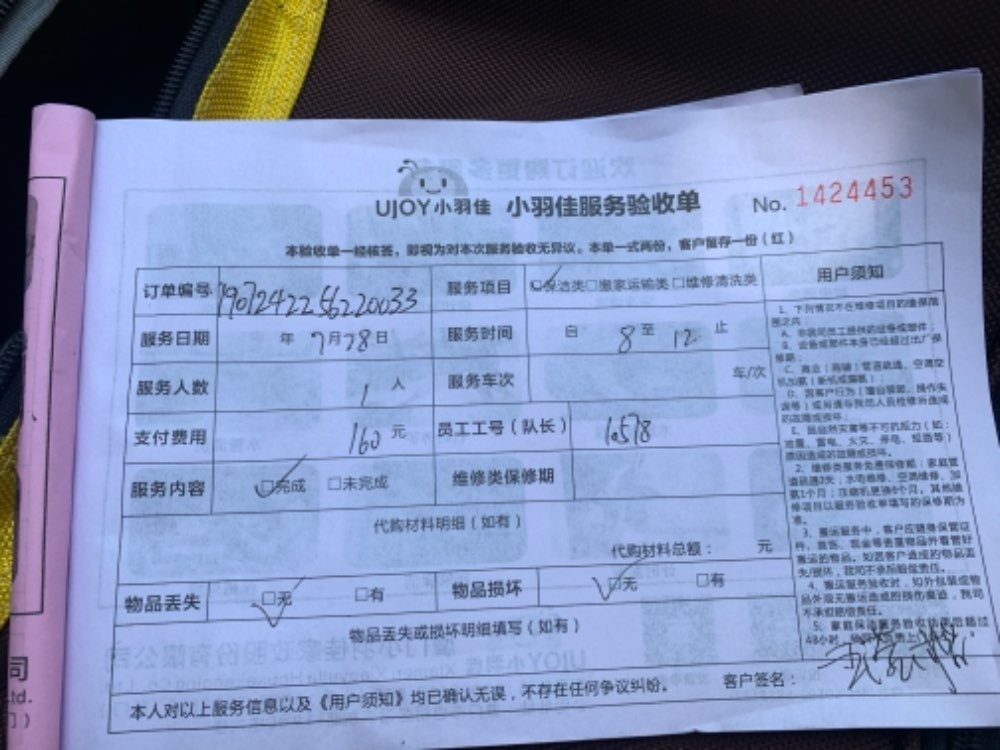 UJOY小羽佳 小羽佳服务验收单 No. 1424453
本验收单一经核签，即视为对本次服务验收无异议。本单一式两份，客户留存一份（红）
订单编号 1907242256220033 服务项目 ☑保洁类□搬家运输类□维修清洗类
服务日期 年 7月28日 服务时间 自 8 至 12 止
服务人数 1 人 服务车次 车/次
支付费用 160 元 员工工号（队长） 16578
服务内容 ☑完成 □未完成 维修类保修期
代购材料明细（如有）
代购材料总额： 元
物品丢失 ☑无 □有 物品损坏 ☑无 □有
物品丢失或损坏明细填写（如有）
本人对以上服务信息以及《用户须知》均已确认无误，不存在任何争议纠纷。 客户签名：
用户须知
1、下列情况不在维修项目的维保范
围之内：
A、非我司员工提供的设备或部件；
B、设备或部件本身已经超过出厂保
修期；
C、商业（商铺）管道疏通、空调空
D、因客户行为（擅自装卸、操作失
的故障或损坏；
E、因自然灾害等不可抗拒力（如：
地震、雷电、火灾、停电、短路等）
原因造成的故障或损坏。
2、维修类服务免费保修期：家庭管
道疏通3天；水电维修、空调维修、加
修项目以服务验收单填写的保修期为
准。
3、搬运服务中，客户应随身保管证
件、首饰、现金等贵重物品并看管好
搬运的物品。如因客户造成的物品丢
失/损坏，我司不承担赔偿责任。
4、搬运服务验收时，如外包装或物
品外观无搬运造成的损伤痕迹，我司
不承担赔偿责任。
5、家庭保洁服务验收
48小时
司
td.
门）